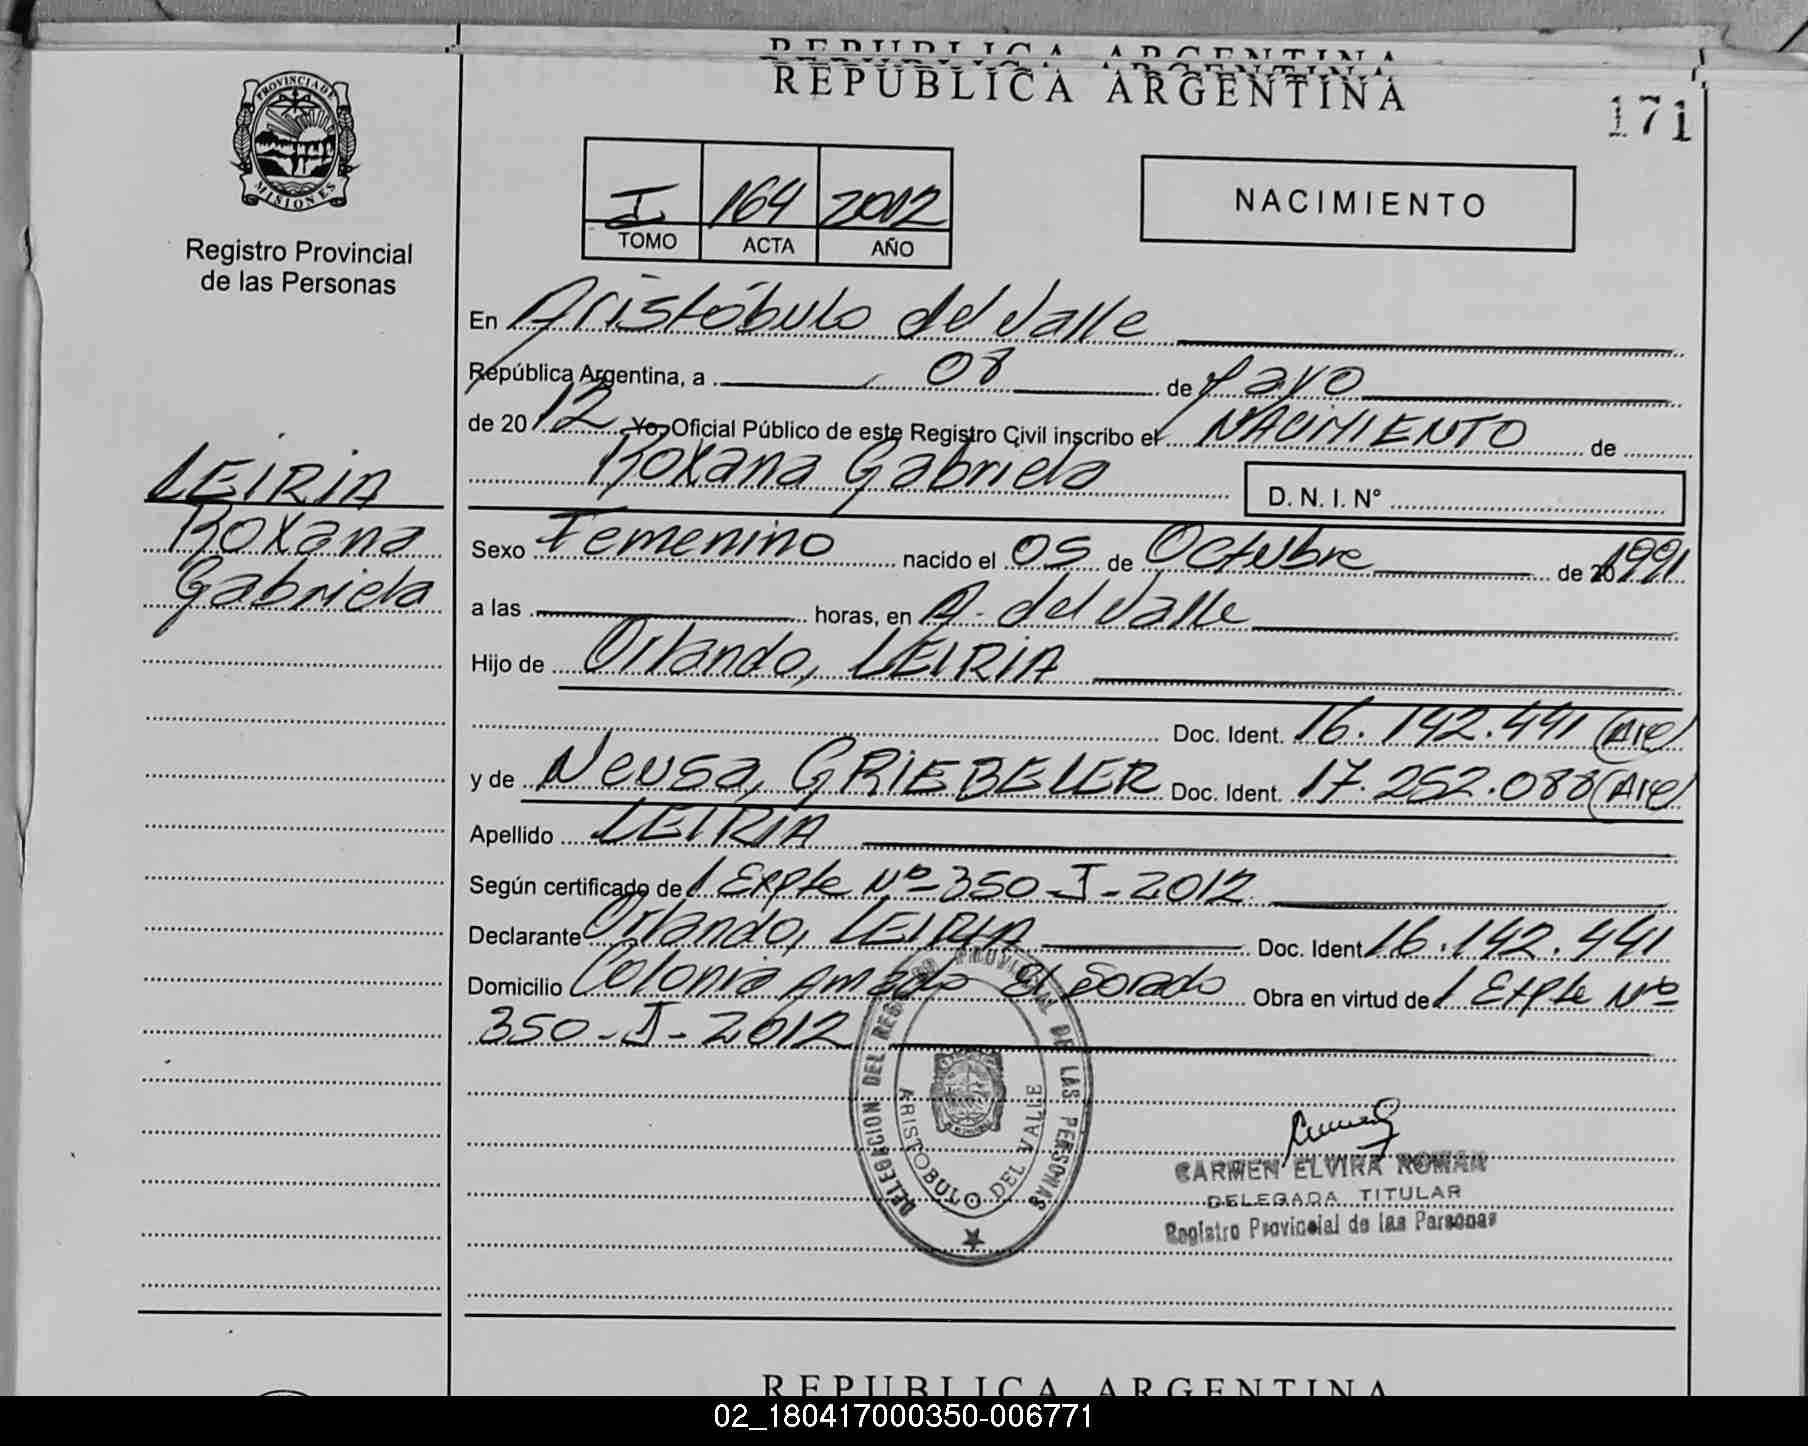 REPUBLICA ARGENTINA
REPUBLICA ARGENTINA
171
PROVINCIA DE MISIONES
Registro Provincial
de las Personas
I 164 2012
TOMO ACTA AÑO
NACIMIENTO
En Aristóbulo del Valle
República Argentina, a 08 de Mayo
de 2012 Yo, Oficial Público de este Registro Civil inscribo el NACIMIENTO de
Roxana Gabriela D. N. I. N°
LEIRIA
Roxana
Gabriela
Sexo Femenino nacido el 05 de Octubre de 1991
a las horas, en A. del Valle
Hijo de Orlando, LEIRIA
Doc. Ident. 16.142.441 (Arg)
y de Neusa, GRIEBELER Doc. Ident. 17.252.088 (Arg)
Apellido LEIRIA
Según certificado de Expte Nº 350-I-2012
Declarante Orlando, LEIRIA Doc. Ident 16.142.441
Domicilio Colonia Amado El Dorado Obra en virtud de Expte Nº
350-I-2012
DELEGACION DEL REGISTRO PROVINCIAL DE LAS PERSONAS
ARISTOBULO DEL VALLE
CARMEN ELVIRA ROMAN
DELEGADA TITULAR
Registro Provincial de las Personas
REPUBLICA ARGENTINA
02_180417000350-006771